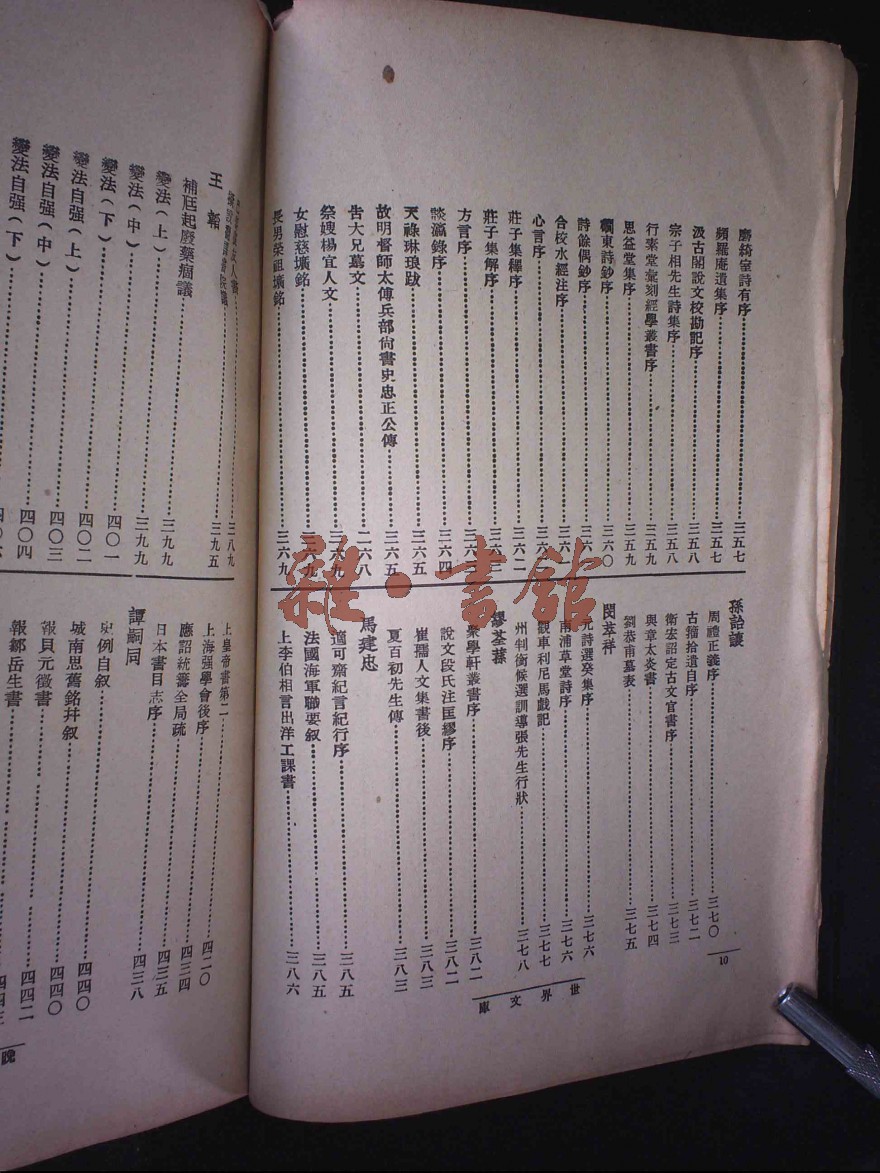 廎綺室詩有序…三五七
頻羅庵遺集序…三五七
汲古閣說文校勘記序…三五八
宗子相先生詩集序…三五八
行素堂彙刻經學叢書序…三五九
思益堂集序…三五九
東詩鈔序…三六〇
詩餘偶鈔序…三六
合校水經注序…三六
心言序…三六
莊子集釋序…三六二
莊子集解序…三六
方言序…三六
談瀛錄序…三六四
天祿琳琅跋…三六五
故明督師太傅兵部尙書史忠正公傳…三六五
告大兄墓文…二六八
祭嫂楊宜人文…三六九
女慰慈壙銘…三六九
長男榮祖壙銘…三六九
孫詒讓
周禮正義序…三七〇
古籀拾遺自序…三七二
衞宏詔定古文官書序…三七三
與章太炎書…三七四
劉恭甫墓表…三七五
閔萃祥
元詩選癸集序…三七六
南浦草堂詩序…三七六
觀車利尼馬戲記…三七七
州判銜候選訓導張先生行狀…三七八
繆荃蓀
聚學軒叢書序…三八二
說文段氏注匡繆序…三八二
崔孺人文集書後…三八三
夏百初先生傳…三八三
馬建忠
適可齋紀言紀行序…三八五
法國海軍職要叙…三八五
上李伯相言出洋工課書…三八六
10
世界文庫
友人書…三八九
三九五
王韜
補尫起廢藥痼議
變法（上）…三九九
變法（中）…三九九
變法（下）…四〇一
變法自强（上）…四〇二
變法自强（中）…四〇三
變法自强（下）…四〇四
上皇帝書第二…四二〇
上海强學會後序
應詔統籌全局疏…四三四
日本書目志序…四三五
譚嗣同…四三八
史例自叙
城南思舊銘幷叙…四四〇
報貝元徵書…四四〇
報鄒岳生書…四四二
晚
雜·書館